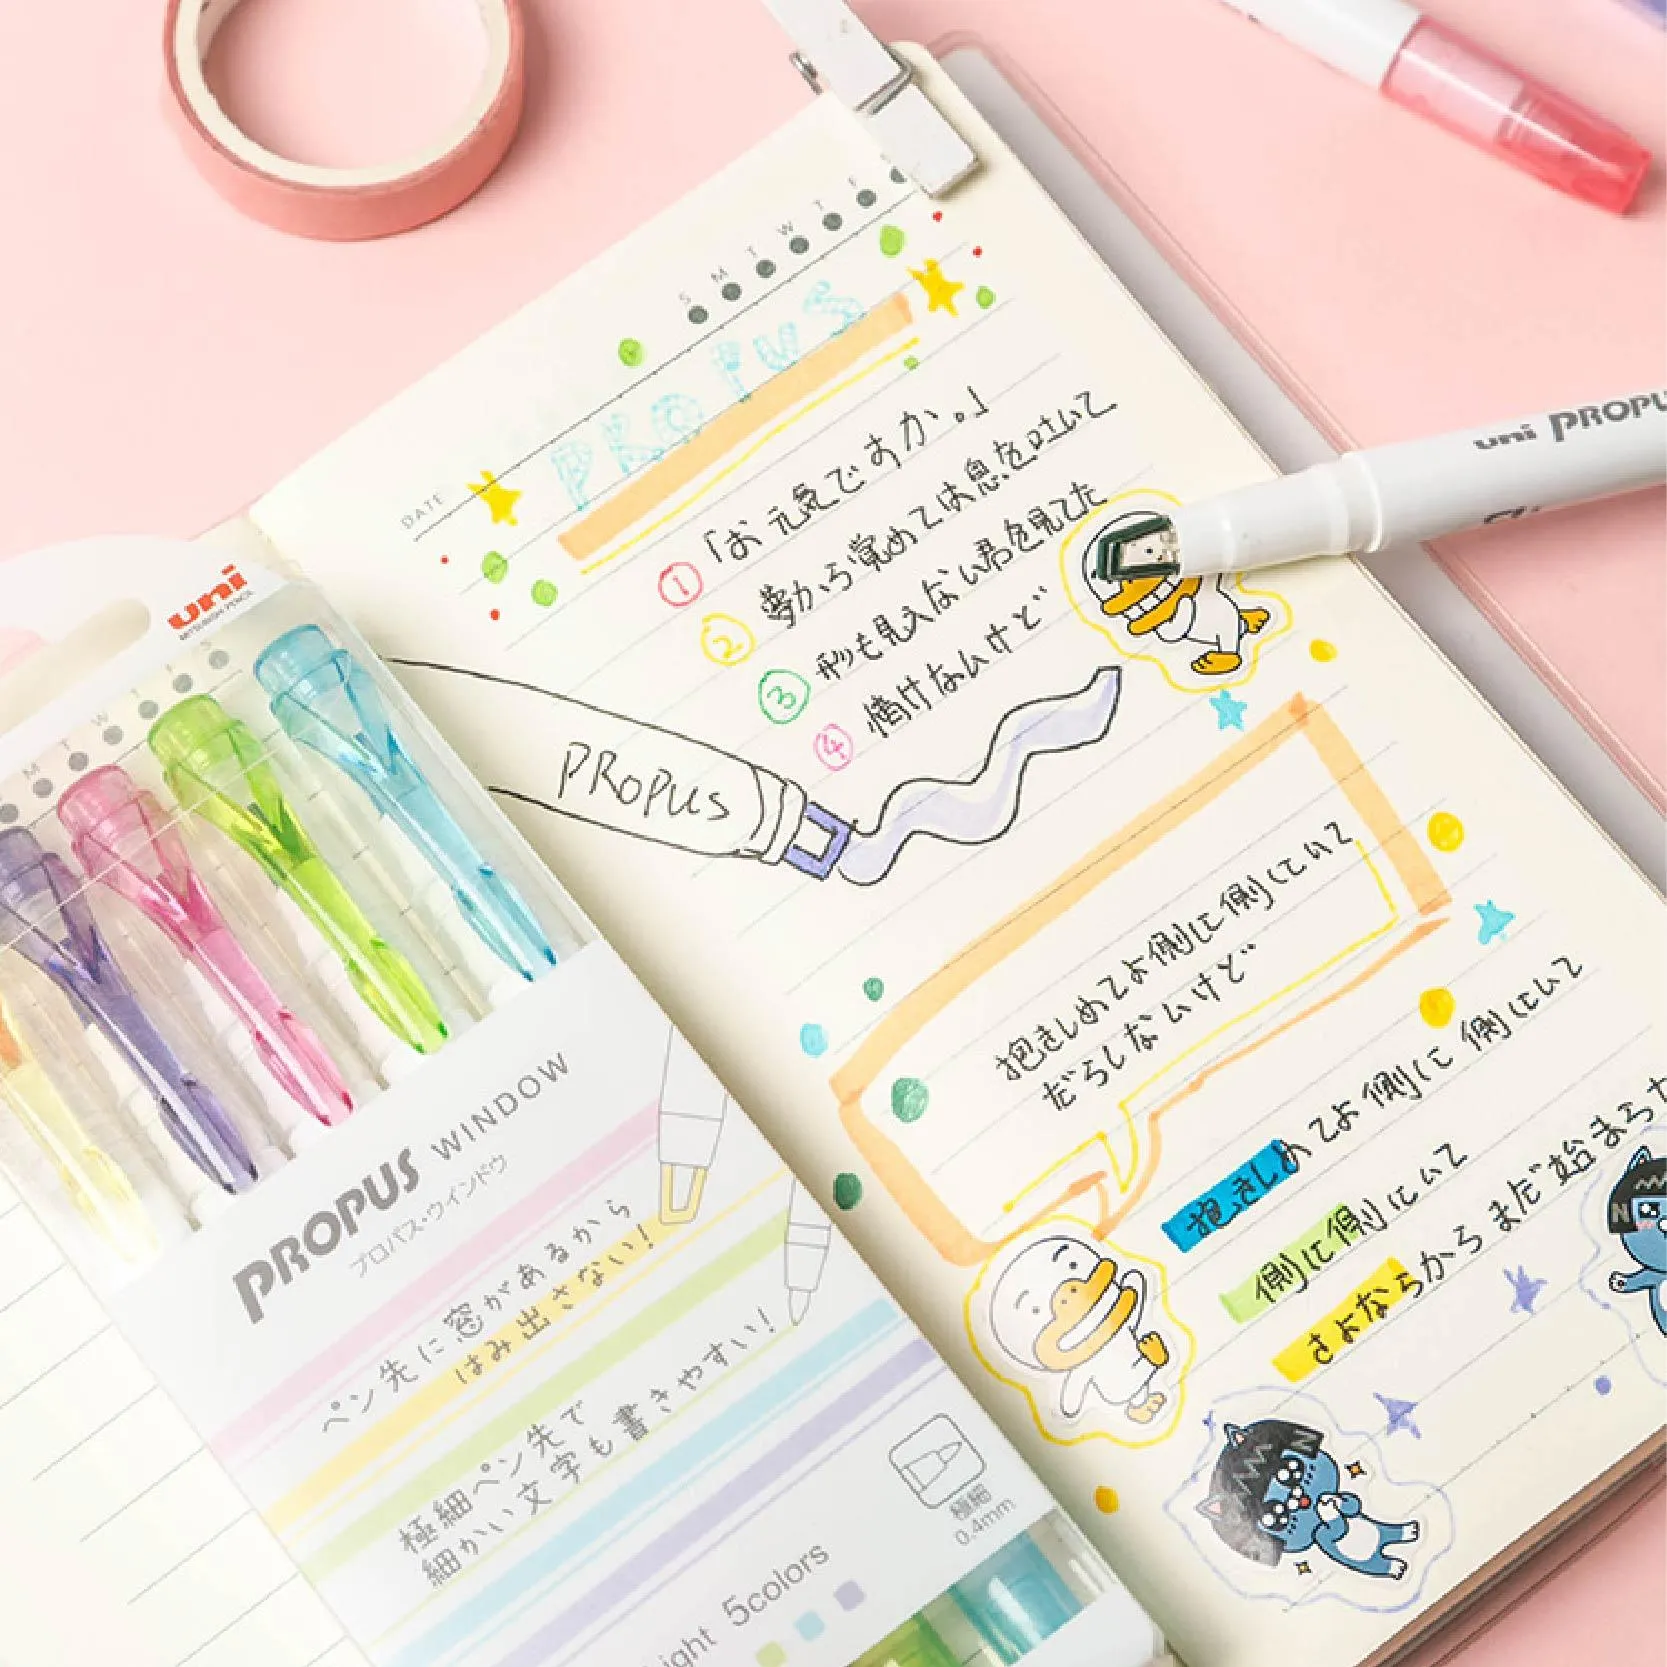 DATE
S M T W T F
PROPUS
① 「お元気ですか。」
② 夢から覚めては息を吐いて
③ 形も見えない君を見てた
④ 情けないけど
PROPUS
抱きしめてよ側に側にいて
だらしないけど
抱きしめてよ側に側にいて
側に側にいて
さよならからまだ始まらな
uni PROPU
uni
MITSUBISHI PENCIL
M T W T F S
PROPUS WINDOW
プロパス・ウインドウ
ペン先に窓があるから
はみ出さない!
極細ペン先で
細かい文字も書きやすい!
極細
0.4mm
ight 5colors